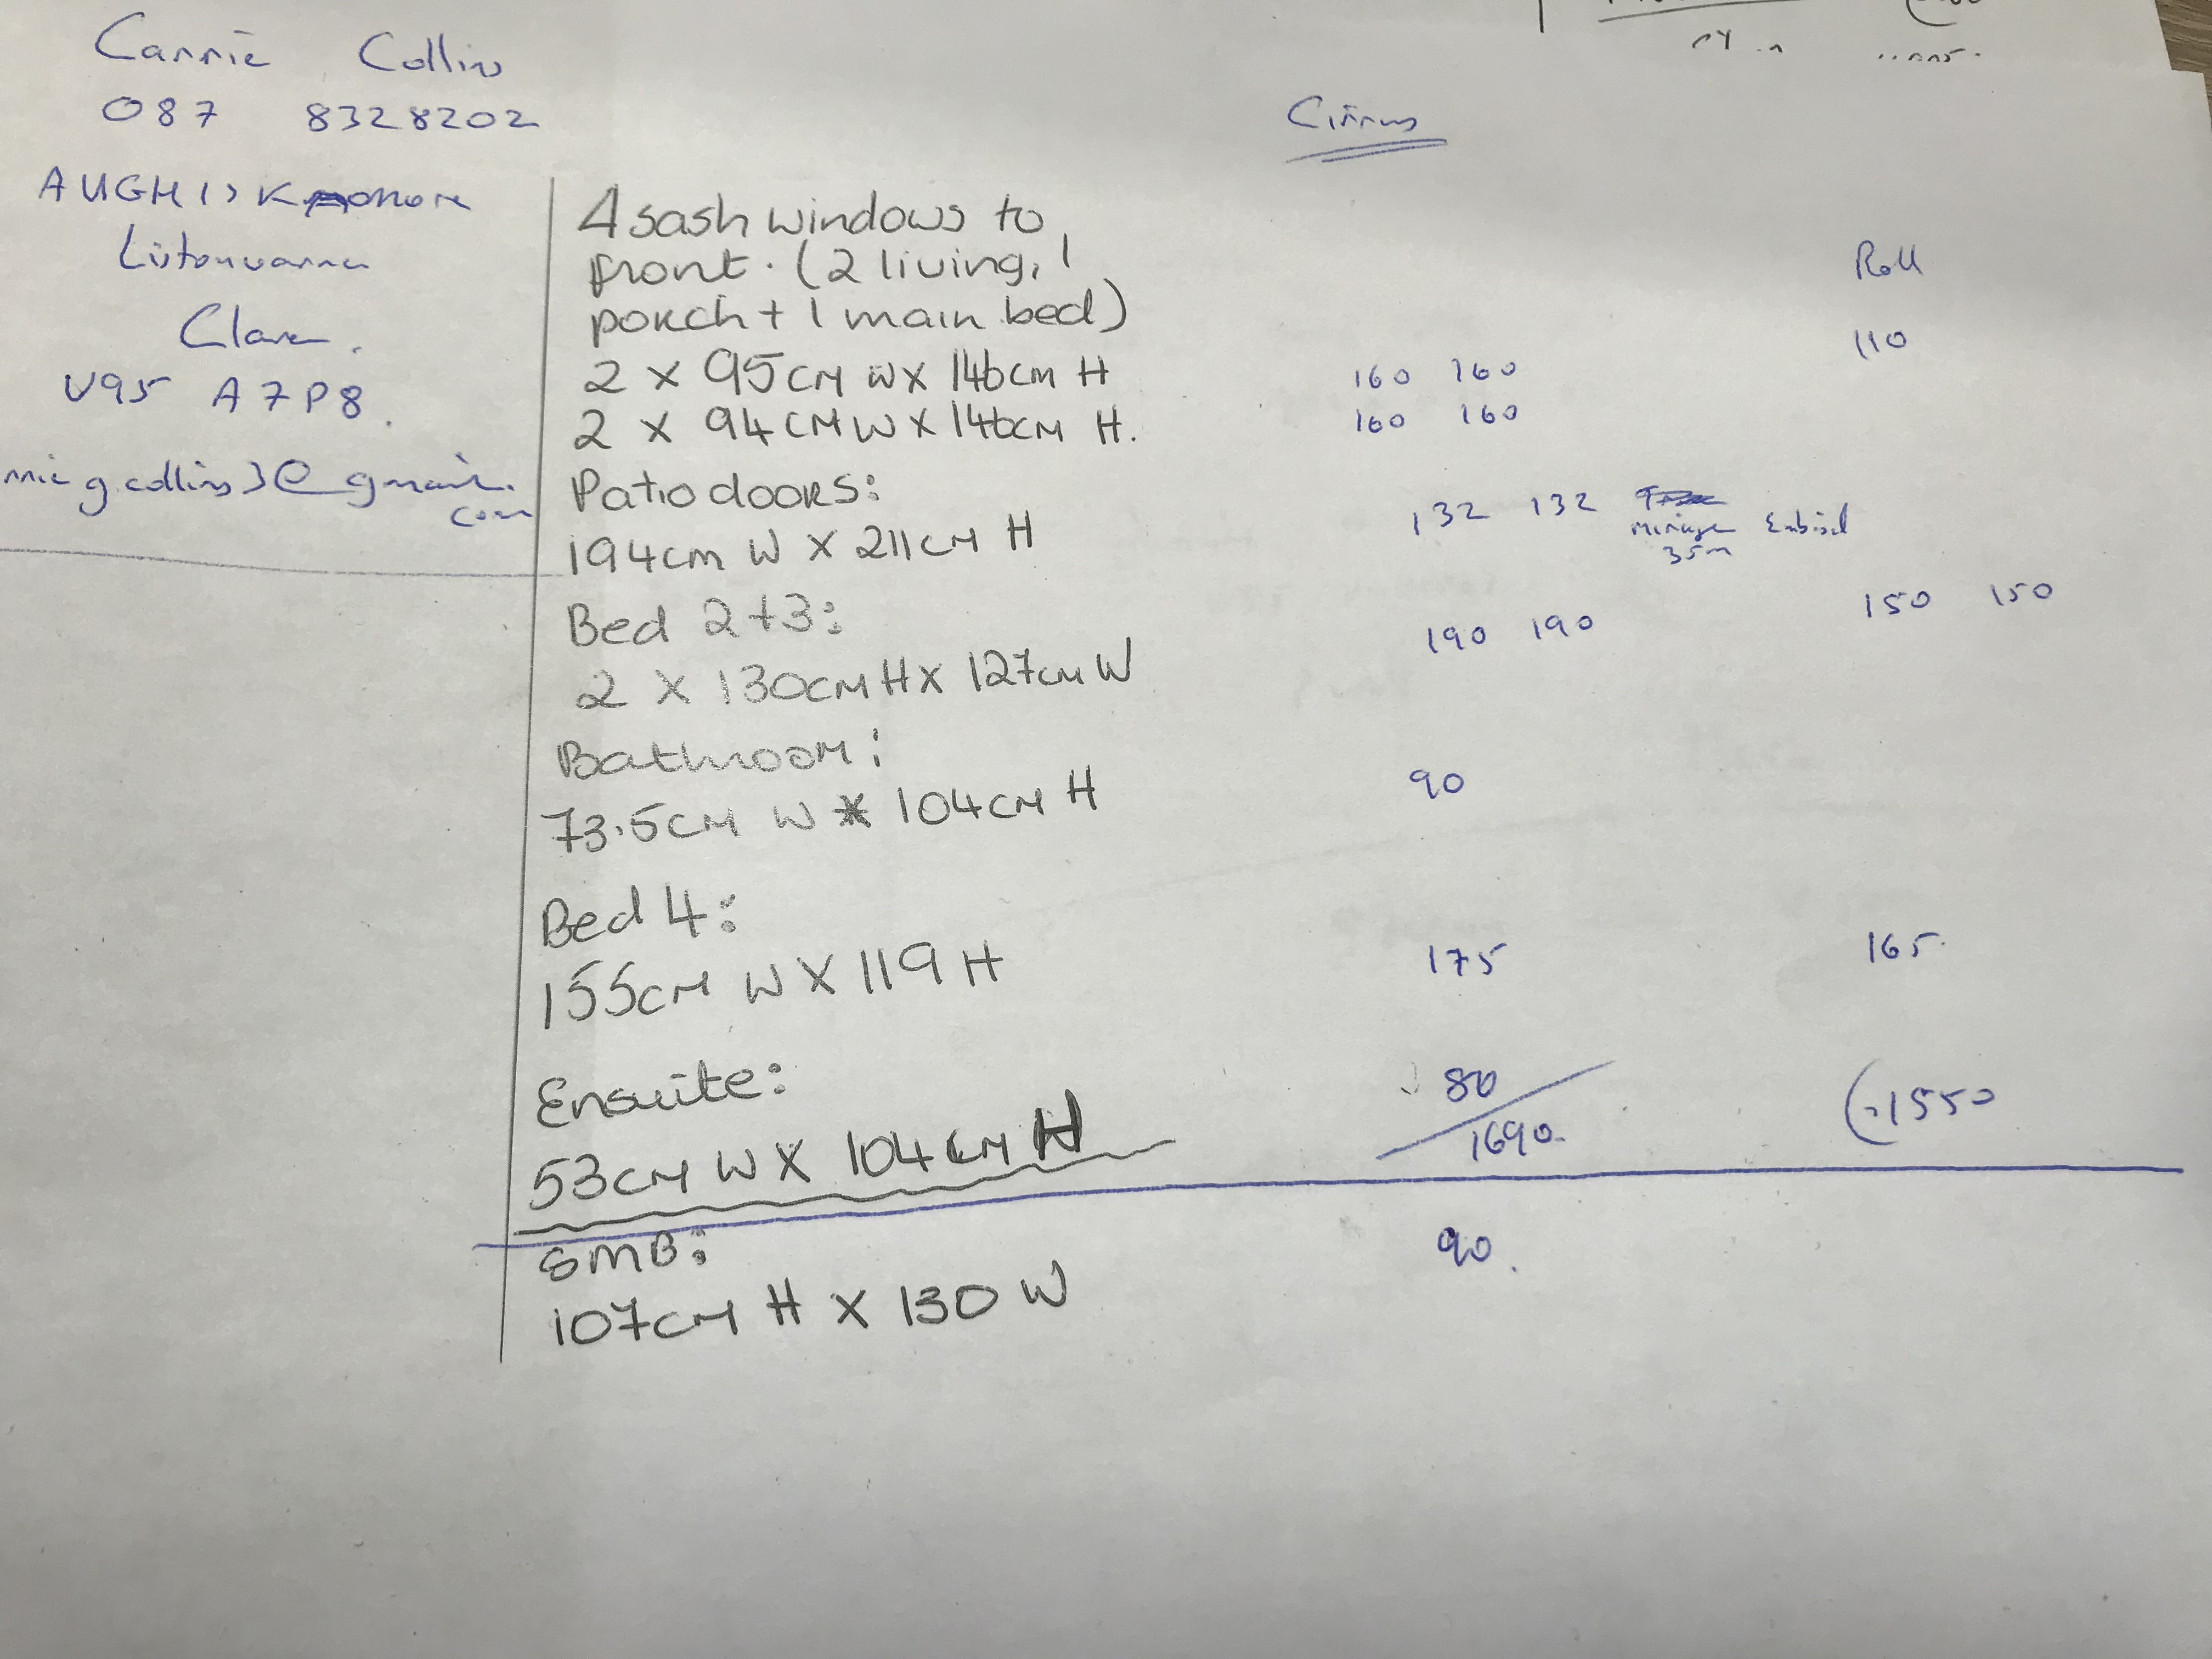 Cannie Collins
087 8328202
Listonvarna
Clare.
V95 A7P8.
g.collins3@gmail.
com
Cirrus
4 sash windows to
front. (2 living, 1
porch + 1 main bed)
2 x 95cm W x 146cm H 160 160
2 x 94cm W x 146cm H. 160 160
Roll
110
Patio doors:
194cm W x 211cm H 132 132
35m
Bed 2+3:
2 x 130cm H x 127cm W 190 190 150 150
Bathroom:
73.5cm W x 104cm H 90
Bed 4:
155cm W x 119 H 175 165
Ensuite:
53cm W x 104cm H 80
1690. 1550
SMB: 90.
107cm H x 130 W